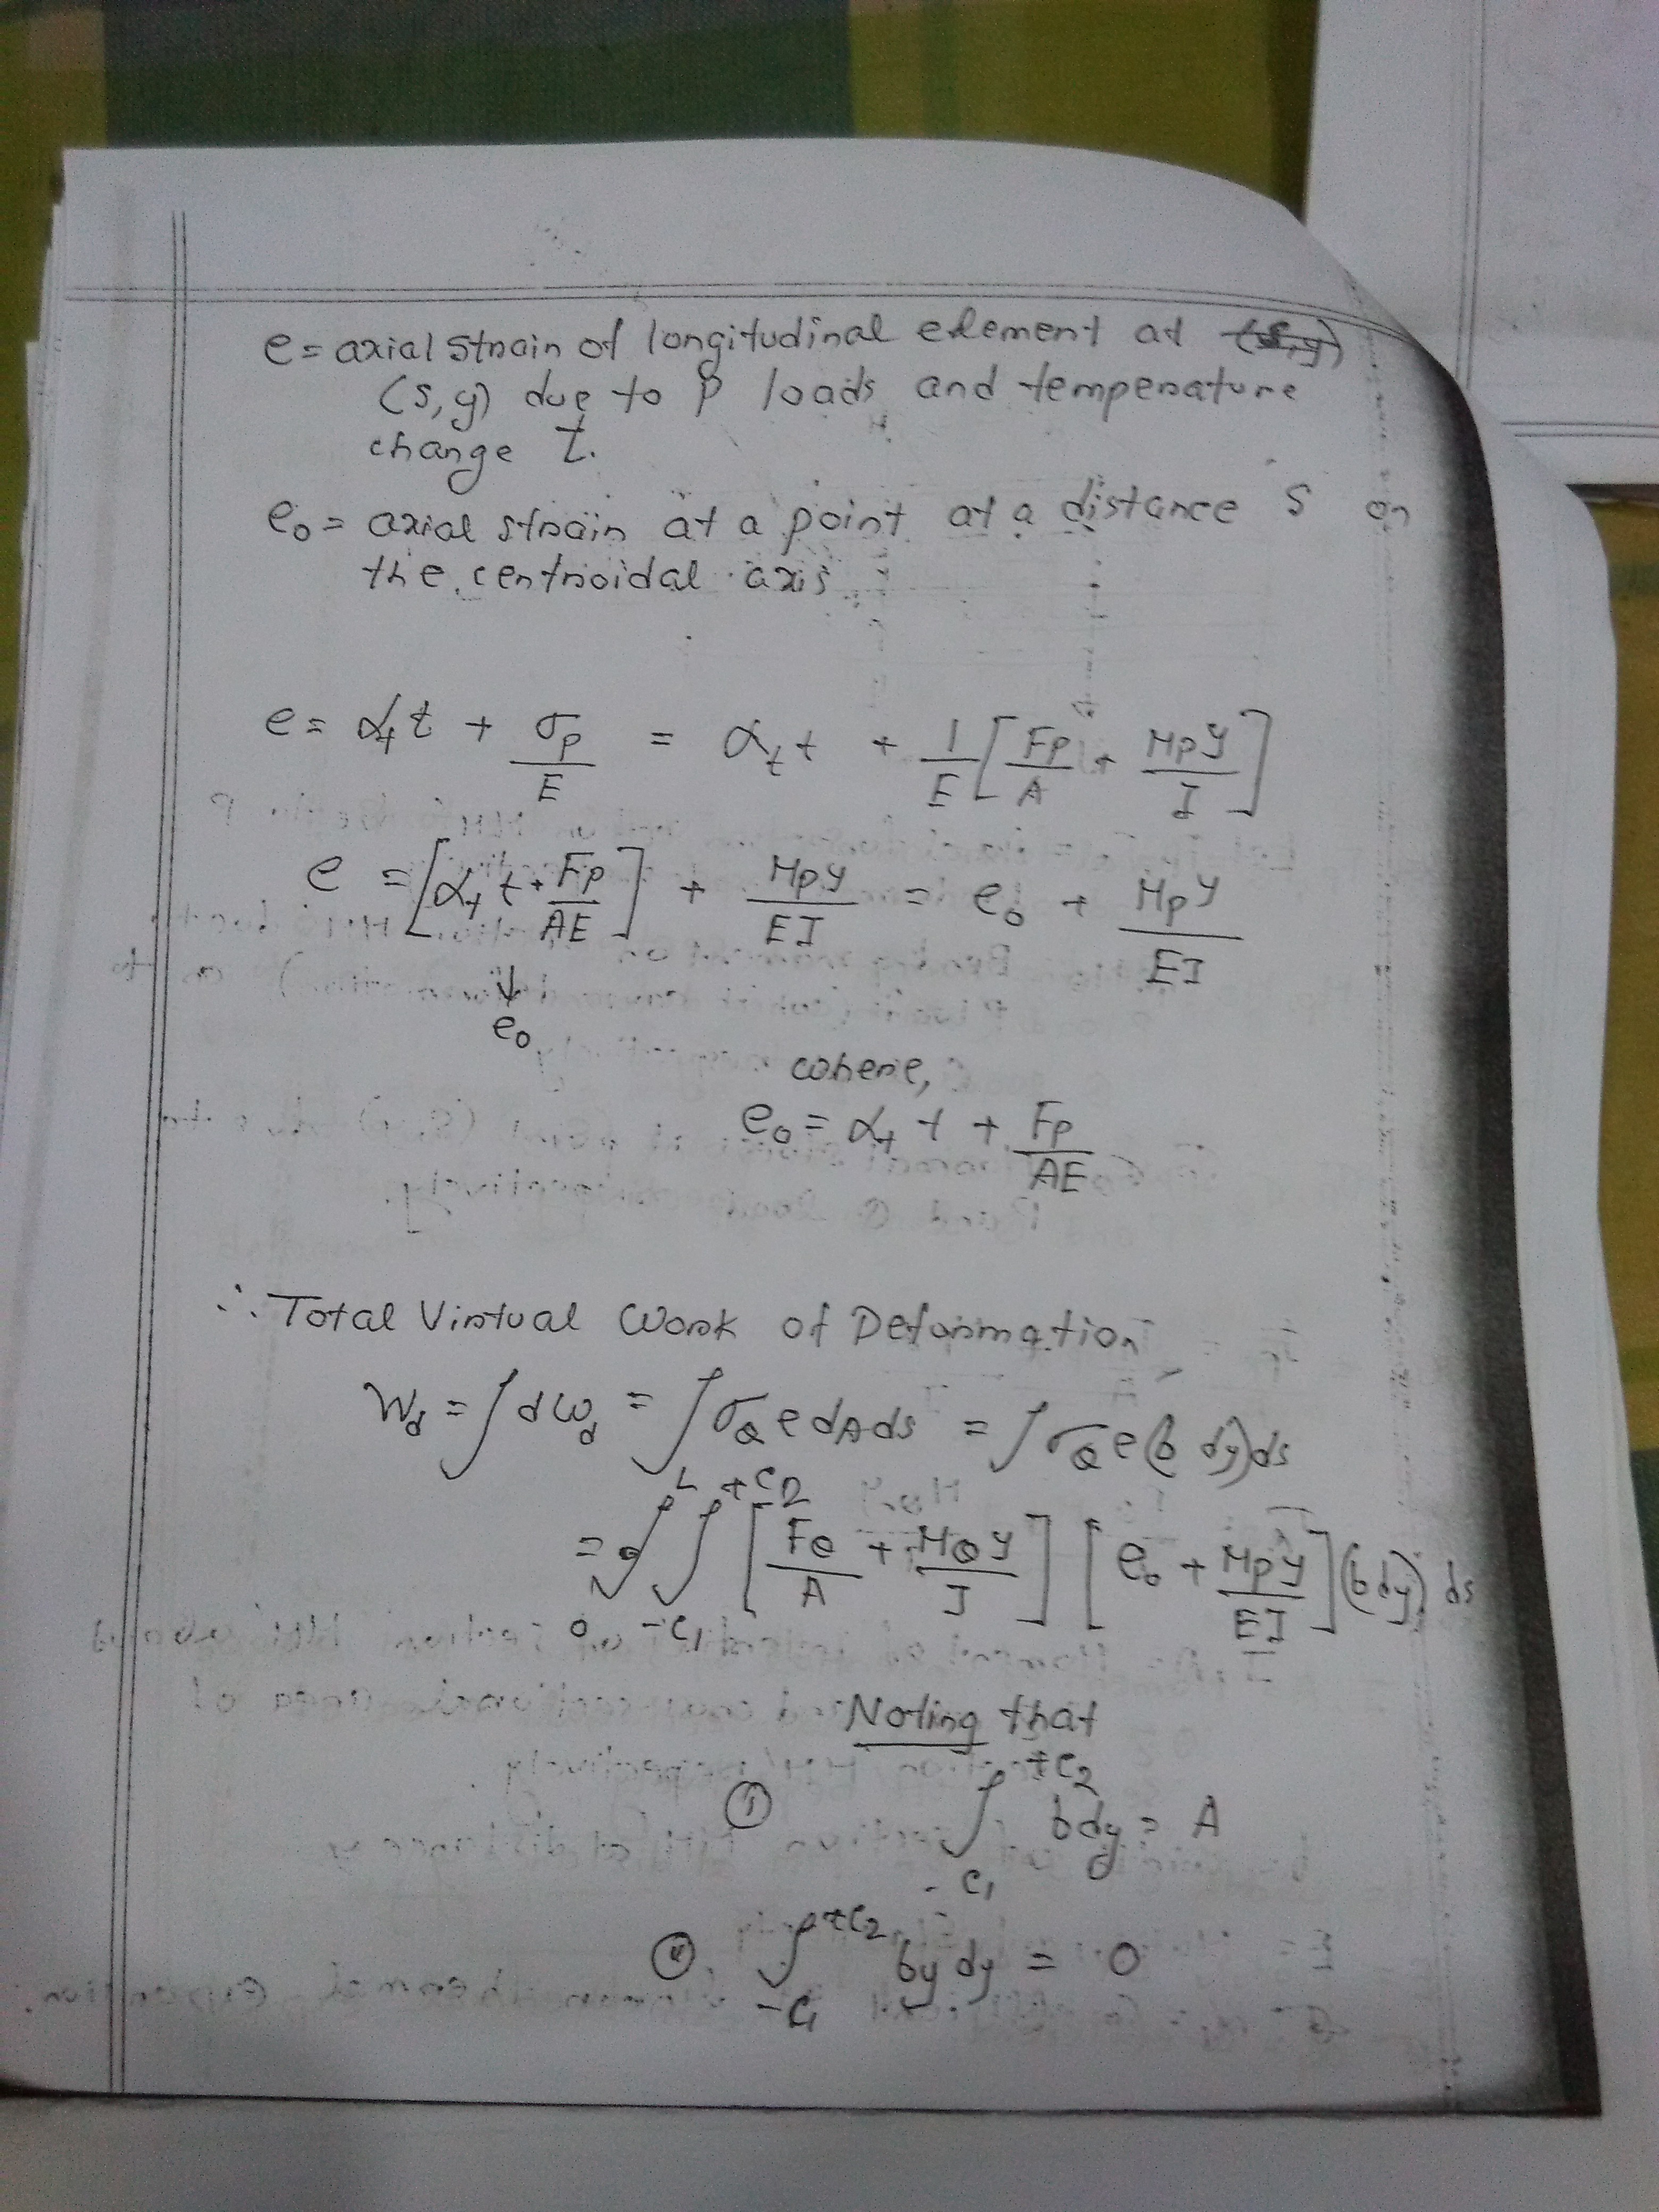 e = axial strain of longitudinal element at (s,y)
(s,y) due to P loads and temperature
change t.
e₀ = axial strain at a point at a distance S on
the centroidal axis
e = αₜt + σp/E = αₜt + 1/E [Fp/A + Mpy/I]
e = [αₜt + Fp/AE] + Mpy/EI = e₀ + Mpy/EI
↓
e₀
where,
e₀ = αₜt + Fp/AE
∴ Total Virtual Work of Deformation
W_d = ∫dω_d = ∫σ_Q e dA ds = ∫σ_Q e (b dy) ds
= ∫₀^L ∫_{-C₁}^{+C₂} [F_Q/A + M_Q y/I] [e₀ + Mpy/EI] (b dy) ds
Noting that
① ∫_{-C₁}^{+C₂} b dy = A
② ∫_{-C₁}^{+C₂} by dy = 0